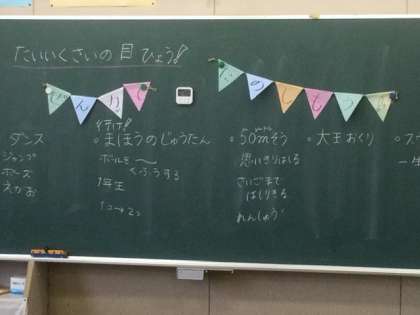 たいいくさいの目ひょう!
ぜんりょく
たのしもうね
ダンス
ジャンプ
ポーズ
えがお
行け!
・まほうのじゅうたん
ボールを〜
くふうする
1年生
1こ→2こ
・50mそう
思いきりはしる
さいごまで
はしりきる
れんしゅう
・大玉おくり